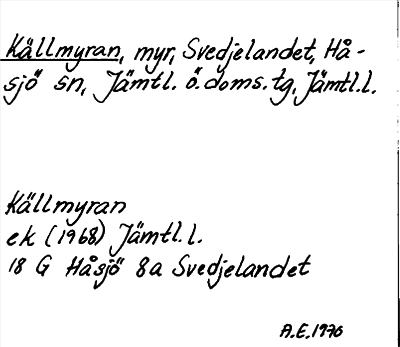 Källmyran, myr, Svedjelandet, Hå-
sjö sn, Jämtl. ö. doms. tg, Jämtl.l.
Källmyran
ek (1968) Jämtl.l.
18 G Håsjö 8a Svedjelandet
A.E. 1970